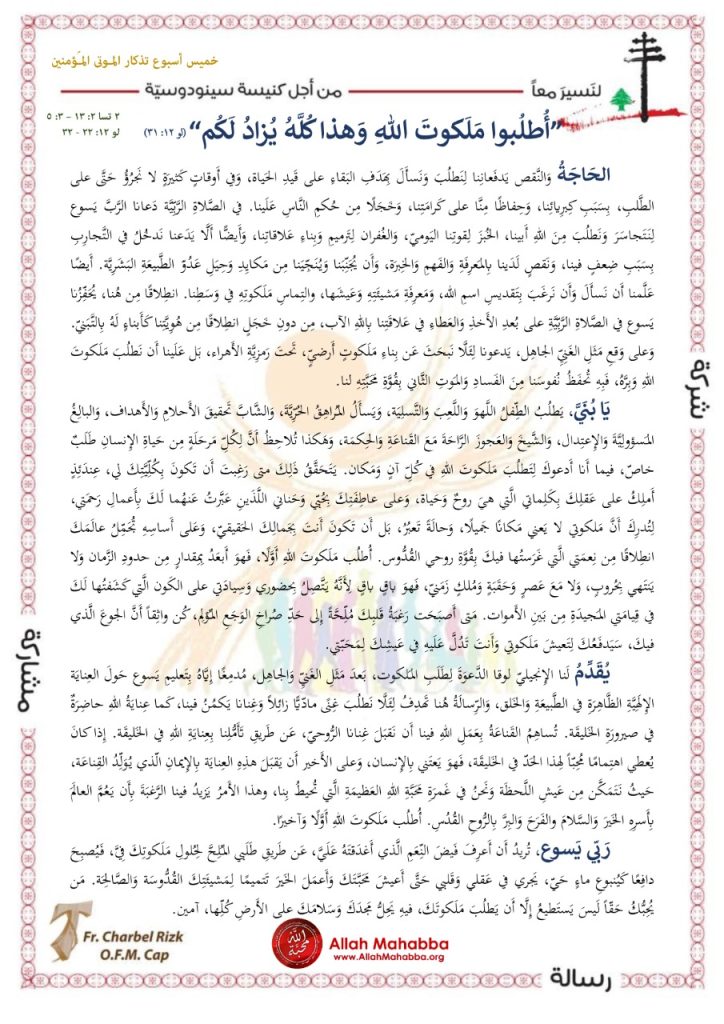 خميس أسبوع تذكار الموتى المؤمنين
لنَسيرَ معاً
من أجل كنيسة سينودوسيّة
٢ تسا ٢: ١٣ – ٣: ٥
لو ١٢: ٢٢ - ٣٢
”أُطلُبوا مَلَكوتَ اللهِ وَهذا كُلَّهُ يُزادُ لَكُم“ (لو ١٢: ٣١)
الحَاجَةُ وَالنَّقص يَدفَعانِنا لِنَطلُبَ وَنَسأَلَ بِهَدَفِ البَقاءِ على قَيدِ الحَياة، وَفي أَوقاتٍ كَثيرَةٍ لا نَجرُؤُ حَتَّى على
الطَّلَبِ، بِسَبَبِ كِبرِيائِنا، وَحِفاظًا مِنَّا على كَرامَتِنا، وَخَجَلًا مِن حُكمِ النَّاسِ عَلَينا. في الصَّلاةِ الرَّبِّيَّةِ دَعانا الرَّبُّ يَسوع
لِنَتَجاسَرَ وَنَطلُبَ مِنَ اللهِ أَبينا، الخُبزَ لِقوتِنا اليَوميّ، وَالغُفران لِتَرميمِ وَبِناءِ عَلاقاتِنا، وَأَيضًا أَلَّا يَدَعنا نَدخُلُ في التَّجارِبِ
بِسَبَبِ ضِعفٍ فينا، وَنَقصٍ لَدَينا بِالمَعرِفَةِ وَالفَهمِ وَالخِبرَة، وَأَن يُجَنِّبَنا وَيُنَجِّيَنا مِن مَكايِدِ وَحِيَلِ عَدُوِّ الطَّبيعَةِ البَشَرِيَّة. أَيضًا
عَلَّمَنا أَن نَسأَلَ وَأَن نَرغَبَ بِتَقديسِ اسمِ الله، وَمَعرِفَةِ مَشيئَتِهِ وَعَيشِها، وَالتِماسِ مَلَكوتِهِ في وَسَطِنا. انطِلاقًا مِن هُنا، يُحَفِّزُنا
يَسوع في الصَّلاةِ الرَّبِّيَّةِ على بُعدِ الأَخذِ وَالعَطاءِ في عَلاقَتِنا بِاللهِ الآب، مِن دونِ خَجَلٍ انطِلاقًا مِن هُوِيَّتِنا كَأَبناءٍ لَهُ بِالتَّبَنِّيّ.
وَعلى وَقعِ مَثَلِ الغَنِيِّ الجاهِل، يَدعونا لِئَلَّا نَبحَثَ عَن بِناءِ مَلَكوتٍ أَرضِيّ، تَحتَ رَمزِيَّةِ الأَهراء، بَل عَلَينا أَن نَطلُبَ مَلَكوتَ
اللهِ وَبِرَّهُ، فَبِهِ تُحفَظُ نُفوسُنا مِنَ الفَسادِ وَالمَوتِ الثَّاني بِقُوَّةِ مَحَبَّتِهِ لنا.
يَا بُنَيَّ، يَطلُبُ الطِّفلُ اللَّهوَ وَاللَّعِبَ وَالتَّسلِيَة، وَيَسأَلُ المُراهِقُ الحُرِّيَّة، وَالشَّابُّ تَحقيقَ الأَحلامِ وَالأَهداف، وَالبالِغُ
المَسؤولِيَّةَ وَالإِعتِدال، وَالشَّيخُ وَالعَجوزَ الرَّاحَةَ مَعَ القَناعَةِ وَالحِكمَة، وَهكَذا تُلاحِظُ أَنَّ لِكُلِّ مَرحَلَةٍ مِن حَياةِ الإِنسانِ طَلَبٌ
خاصّ، فيما أَنا أَدعوكَ لِتَطلُبَ مَلَكوتَ اللهِ في كُلِّ آنٍ وَمَكان. يَتَحَقَّقُ ذَلِكَ متى رَغِبتَ أَن تَكونَ بِكُلِّيَّتِكَ لي، عِندَئِذٍ
أَملِكُ على عَقلِكَ بِكَلِماتي الَّتي هيَ روحٌ وَحَياة، وَعلى عاطِفَتِكَ بِحُبِّي وَحَناني اللَّذَينِ عَبَّرتُ عَنهُما لَكَ بِأَعمالِ رَحمَتي،
لِتُدرِكَ أَنَّ مَلَكوتي لا يَعني مَكانًا جَميلًا، وَحالَةً تَعبُرُ، بل أَن تَكونَ أَنتَ بِجَمالِكَ الحَقيقيّ، وَعَلى أَساسِهِ تُجَمِّلُ عالَمَكَ
انطِلاقًا مِن نِعمَتي الَّتي غَرَستُها فيكَ بِقُوَّةِ روحي القُدُّوس. أُطلُب مَلَكوتَ اللهِ أَوَّلًا، فَهوَ أَبعَدُ بِمِقدارٍ مِن حدودِ الزَّمانِ وَلا
يَنتَهي بِحُروبٍ، وَلا مَعَ عَصرٍ وَحَقبَةٍ وَمُلكٍ زَمَنيّ، فَهوَ باقٍ باقٍ لِأَنَّهُ يَتَّصِلُ بِحُضوري وَسِيادَتي على الكَونِ الَّتي كَشَفتُها لَكَ
في قِيامَتي المَجيدَةِ مِن بَينِ الأَموات. مَتى أَصبَحَت رَغبَةُ قَلبِكَ مُلِحَّةً إِلى حَدِّ صُراخِ الوَجَعِ المُؤلم، كُن واثِقاً أَنَّ الجوعَ الَّذي
فيكَ، سَيَدفَعُكَ لِتَعيشَ مَلَكوتي وَأَنتَ تَدُلُّ عَلَيهِ في عَيشِكَ لِمَحَبَّتي.
يُقَدِّمُ لَنا الإِنجيليّ لوقا الدَّعوَةَ لِطَلَبِ المَلَكوت، بَعدَ مَثَلِ الغَنِيِّ وَالجاهِل، مُدمِغًا إِيَّاهُ بِتَعليمِ يَسوع حَولَ العِنايَةِ
الإِلهِيَّةِ الظَّاهِرَةِ في الطَّبيعَةِ وَالخَلق، وَالرِّسالَةُ هُنا تَهدِفُ لِئَلَّا نَطلُبَ غِنًى مادِّيًّا زائِلاً وَغِنانا يَكمُنُ فينا، كَما عِنايَةُ اللهِ حاضِرَةٌ
في صَيرورَةِ الخَليقَة. تُساهِمُ القَناعَةُ بِعَمَلِ اللهِ فينا أَن نَقبَلَ غِنانا الرُّوحيّ، عَن طَريقِ تَأَمُّلِنا بِعِنايَةِ اللهِ في الخَليقَة. إِذا كانَ
يُعطي اهتِمامًا مُحِبّاً لِهذا الحَدّ في الخَليقَة، فَهوَ يَعتَني بِالإِنسان، وَعلى الأَخير أَن يَقبَلَ هَذِهِ العِنايَة بِالإِيمانِ الَّذي يُوَلِّدُ القِناعَة،
حَيثُ نَتَمَكَّن مِن عَيشِ اللَّحظَة وَنَحنُ في غَمرَةِ مَحَبَّةِ اللهِ العَظيمَةِ الَّتي تُحيطُ بِنا، وَهذا الأَمرُ يَزيدُ فينا الرَّغبَةَ بِأَن يَعُمَّ العالَمَ
بِأَسرِهِ الخَيرَ وَالسَّلامَ وَالفَرَحَ وَالبِرَّ بِالرُّوحِ القُدُس. أُطلُب مَلَكوتَ اللهِ أَوَّلًا وَآخيرًا.
رَبِّي يَسوع، تُريدُ أَن أَعرِفَ فَيضَ النِّعَمِ الَّذي أَغدَقتَهُ عَلَيَّ، عَن طَريقِ طَلَبي المُلِحّ لِحُلولِ مَلَكوتِكَ فِيَّ، فَيُصبِحَ
دافِعًا كَيَنبوعِ ماءٍ حَيّ، يَجري في عَقلي وَقَلبي حَتَّى أَعيشَ مَحَبَّتَكَ وَأَعمَلَ الخَيرَ تَتميمًا لِمَشيئَتِكَ القُدُّوسَة وَالصَّالِحَة. مَن
يُحِبُّكَ حَقّاً لَيسَ يَستَطيعُ إِلَّا أَن يَطلُبَ مَلَكوتَك، فيهِ يَحِلُّ مَجدَكَ وَسَلامَكَ على الأَرضِ كُلِّها، آمين.
شركة
مشاركة
رسالة
Fr. Charbel Rizk
O.F.M. Cap
الله محبّة
Allah Mahabba
www.AllahMahabba.org